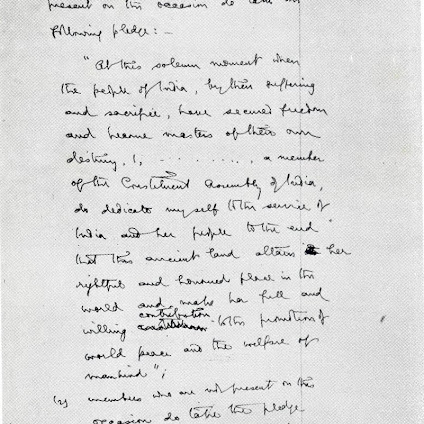 present on this occasion do take the
following pledge: —
"At this solemn moment when
the people of India, by their suffering
and sacrifice, have secured freedom
and become masters of their own
destiny, I, .........., a member
of the Constituent Assembly of India,
do dedicate myself to the service of
India and her people to the end
that this ancient land attains her
rightful and honoured place in the
world and make her full and
contribution
willing to the promotion of
world peace and the welfare of
mankind";
(2) members who are not present on this
occasion do take the pledge